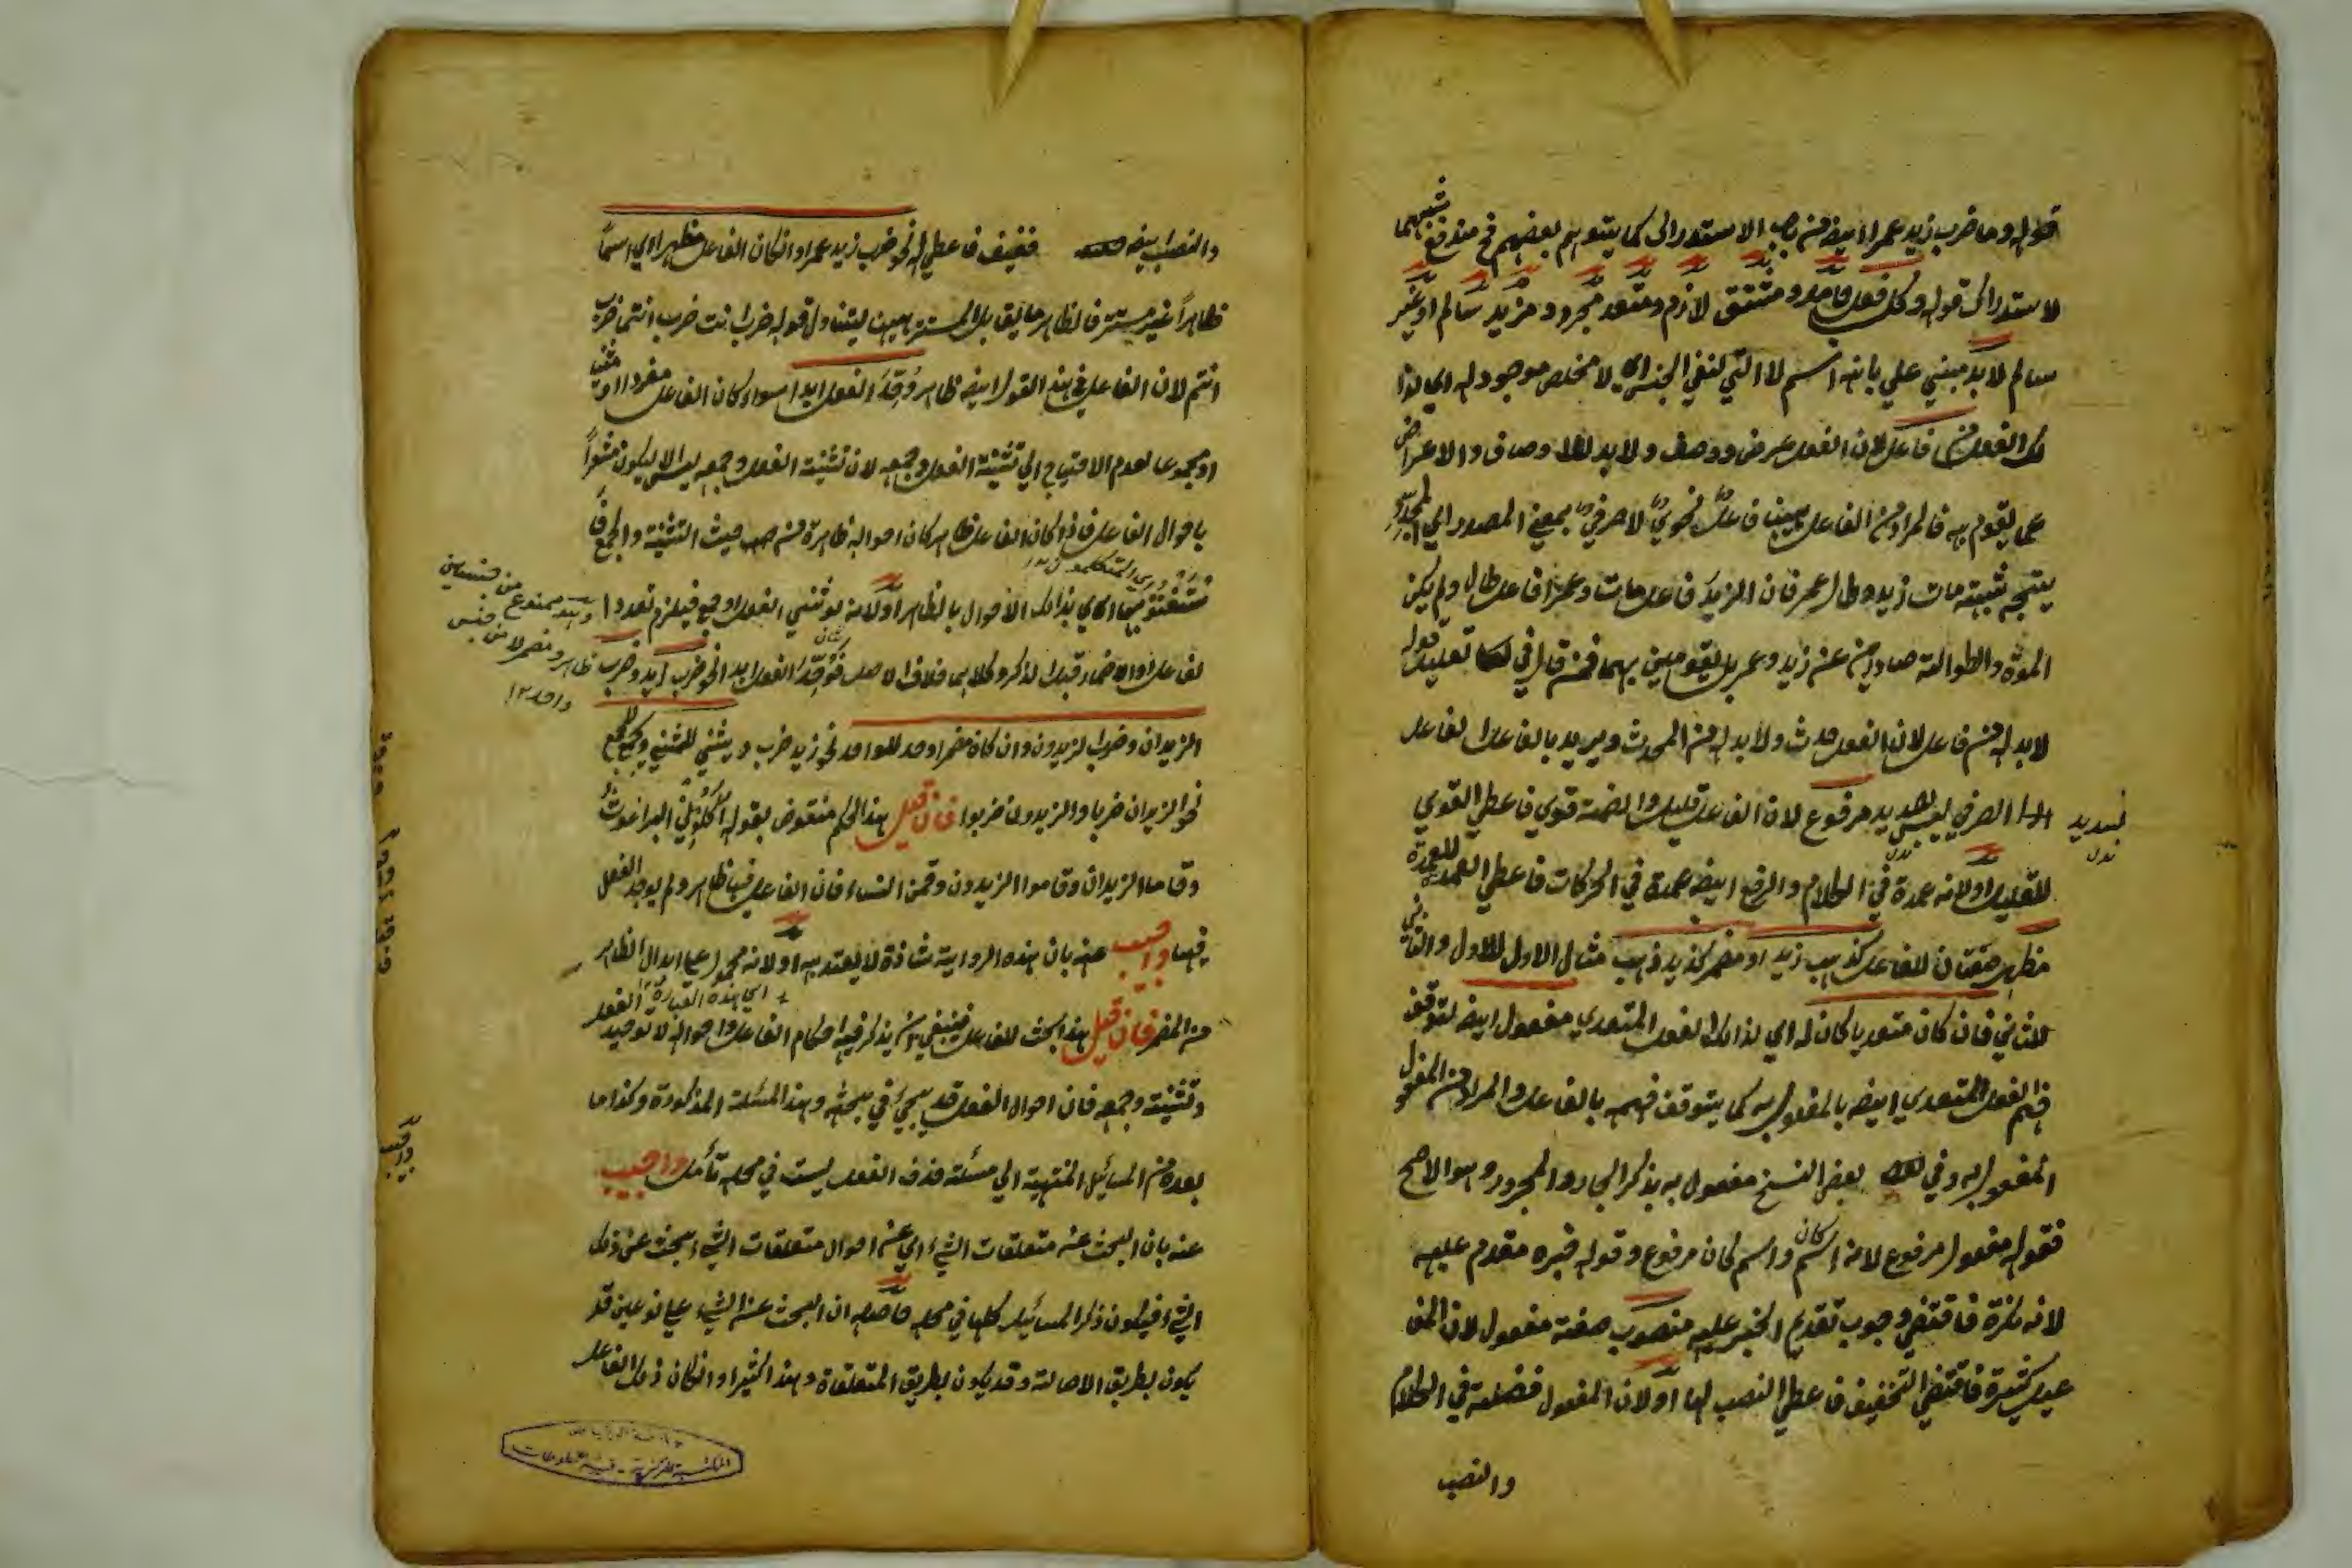 قوله وما ضرب زيد عمرا ايضا من الاستدراك كما يتوهم بعضهم فح مندفع
لاستدراك قوله وكل فعل جامد ومشتق لازم ومتعد مجرد ومزيد سالم او غير
سالم لا بد مبني علي بانه اسم لا التي لنفي الجنس اي لا مخلص موجود له اي لهذا
الفعل من فاعل لان الفعل عرض ووصف ولا بد للاوصاف والاعراض
عما يقوم به فالمراد من الفاعل ههنا فاعل نحوي لا صرفي بمعني المصدر اي
يتجه مات زيد وطال عمر فان الزيد فاعل مات وعمرا فاعل طال ولم يكن
الموة والطوالة صادرين عن زيد وعمر بل يقومين بهما فمن قال في تعليل قوله
لا بد له من فاعل لان الفعل حدث ولا بد له من المحدث ويريد بالفاعل الفاعل
الصرفي ليس بسديد مرفوع لان الفاعل قليل والضمة قوي فاعطي القوي
للقليل او لانه عمدة في الكلام والرفع ايضا عمدة في الحركات فاعطي العمدة للعمدة
مظهر صفتان للفاعل كذهب زيد او مضمر كزيد ذهب مثال الاول للاول والثاني
للثاني فان كان متعديا كان له اي لذالك الفعل المتعدي مفعول ايضا لتوقف
فهم الفعل المتعدي ايضا بالمفعول به كما يتوقف فهمه بالفاعل والمراد من المفعول
المفعول به وفي بعض النسخ مفعول به بذكر الجار والمجرور وهو الاصح
فقوله مفعول مرفوع لانه اسم كان واسم كان مرفوع وقوله خبره مقدم عليه
لانه نكرة فاقتضي وجوب تقديم الخبر عليه منصوب صفة مفعول لان المفا
عيل كثيرة فاقتضي التخفيف فاعطي النصب لها او لان المفعول فضلة في الكلام
والنصب
والنصب ايضا خفيف فاعطي له نحو ضرب زيد عمرا وان كان الفاعل مظهرا اي اسما
ظاهرا غير مستتر فالظاهر ما يقابل المستتر ههنا ليتناول قوله ضرب انت ضرب انتما ضرب
انتم لان الفاعل في هذا القول ايضا ظاهر وُحِّدَ الفعل ابدا سواء كان الفاعل مفردا او مثني
او مجموعا لعدم الاحتياج الي تثنية الفعل وجمعه لان تثنية الفعل وجمعه ليس الا ليكون مشعرا
باحوال الفاعل فاذا كان الفاعل ظاهر كان احواله ظاهرة من حيث التثنية والجمع
اي بذالك الاحوال بالظاهر او لانه لو ثني الفعل او جمع فيلزم تعدد ا
لفاعل او الاضمار قبل الذكر وكلاهما خلاف الاصل فوُحِّدَ الفعل ابدا نحو ضرب زيد وضرب
الزيدان وضرب الزيدون وان كان مضمرا وحد للواحد نحو زيد ضرب ويثني للمثني ويجمع للجمع
نحو الزيدان ضربا والزيدون ضربوا فان قيل هذا الحكم منقوض بقوله اكلوني البراغوث
وقاما الزيدان وقاموا الزيدون وقمن النساء فان الفاعل فيها ظاهر ولم يوحد الفعل
فيها واجيب عنه بان هذه الرواية شاذة لا يعتد به او لانه محمول علي ابدال الظاهر
من المضمر فان قيل هذا بحث للفاعل فينبغي ان يذكر فيه احكام الفاعل واحواله لا توحيد الفعل
وتثنيته وجمعه فان احوال الفعل قد يجيء في بحثه وهذا المسئلة المذكورة وكذا ما
بعده من المسائل المنتهية الي مسئلة حذف الفعل ليست في محله تأمل واجيب
عنه بان البحث عن متعلقات الشيء اي عن احوال متعلقات الشيء بحث عن ذلك
الشيء فيكون ذكر المسائل كلها في محله حاصله ان البحث عن الشيء علي نوعين قد
يكون بطريق الاصالة وقد يكون بطريق المتعلقة وهذا كثيرا وان كان ذلك الفاعل
وهذا ممنوع من جنسين
ظاهر ومضمر لا من جنس
واحد ١٢
اي هذه العبارة
المكتبة المركزية - قسم المخطوطات